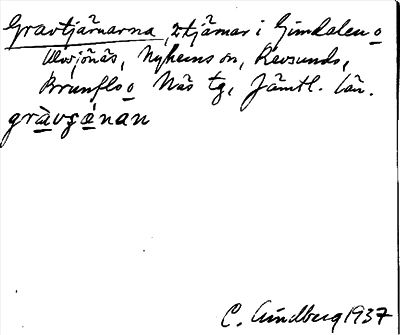 Gravtjärnarna, 2 tjärnar i Gimdalen o
Ulvsjönäs, Nyhems sn, Revsunds,
Brunflo o Näs tg, Jämtl. län.
gràvʒæ̀nan
C. Lindberg 1937